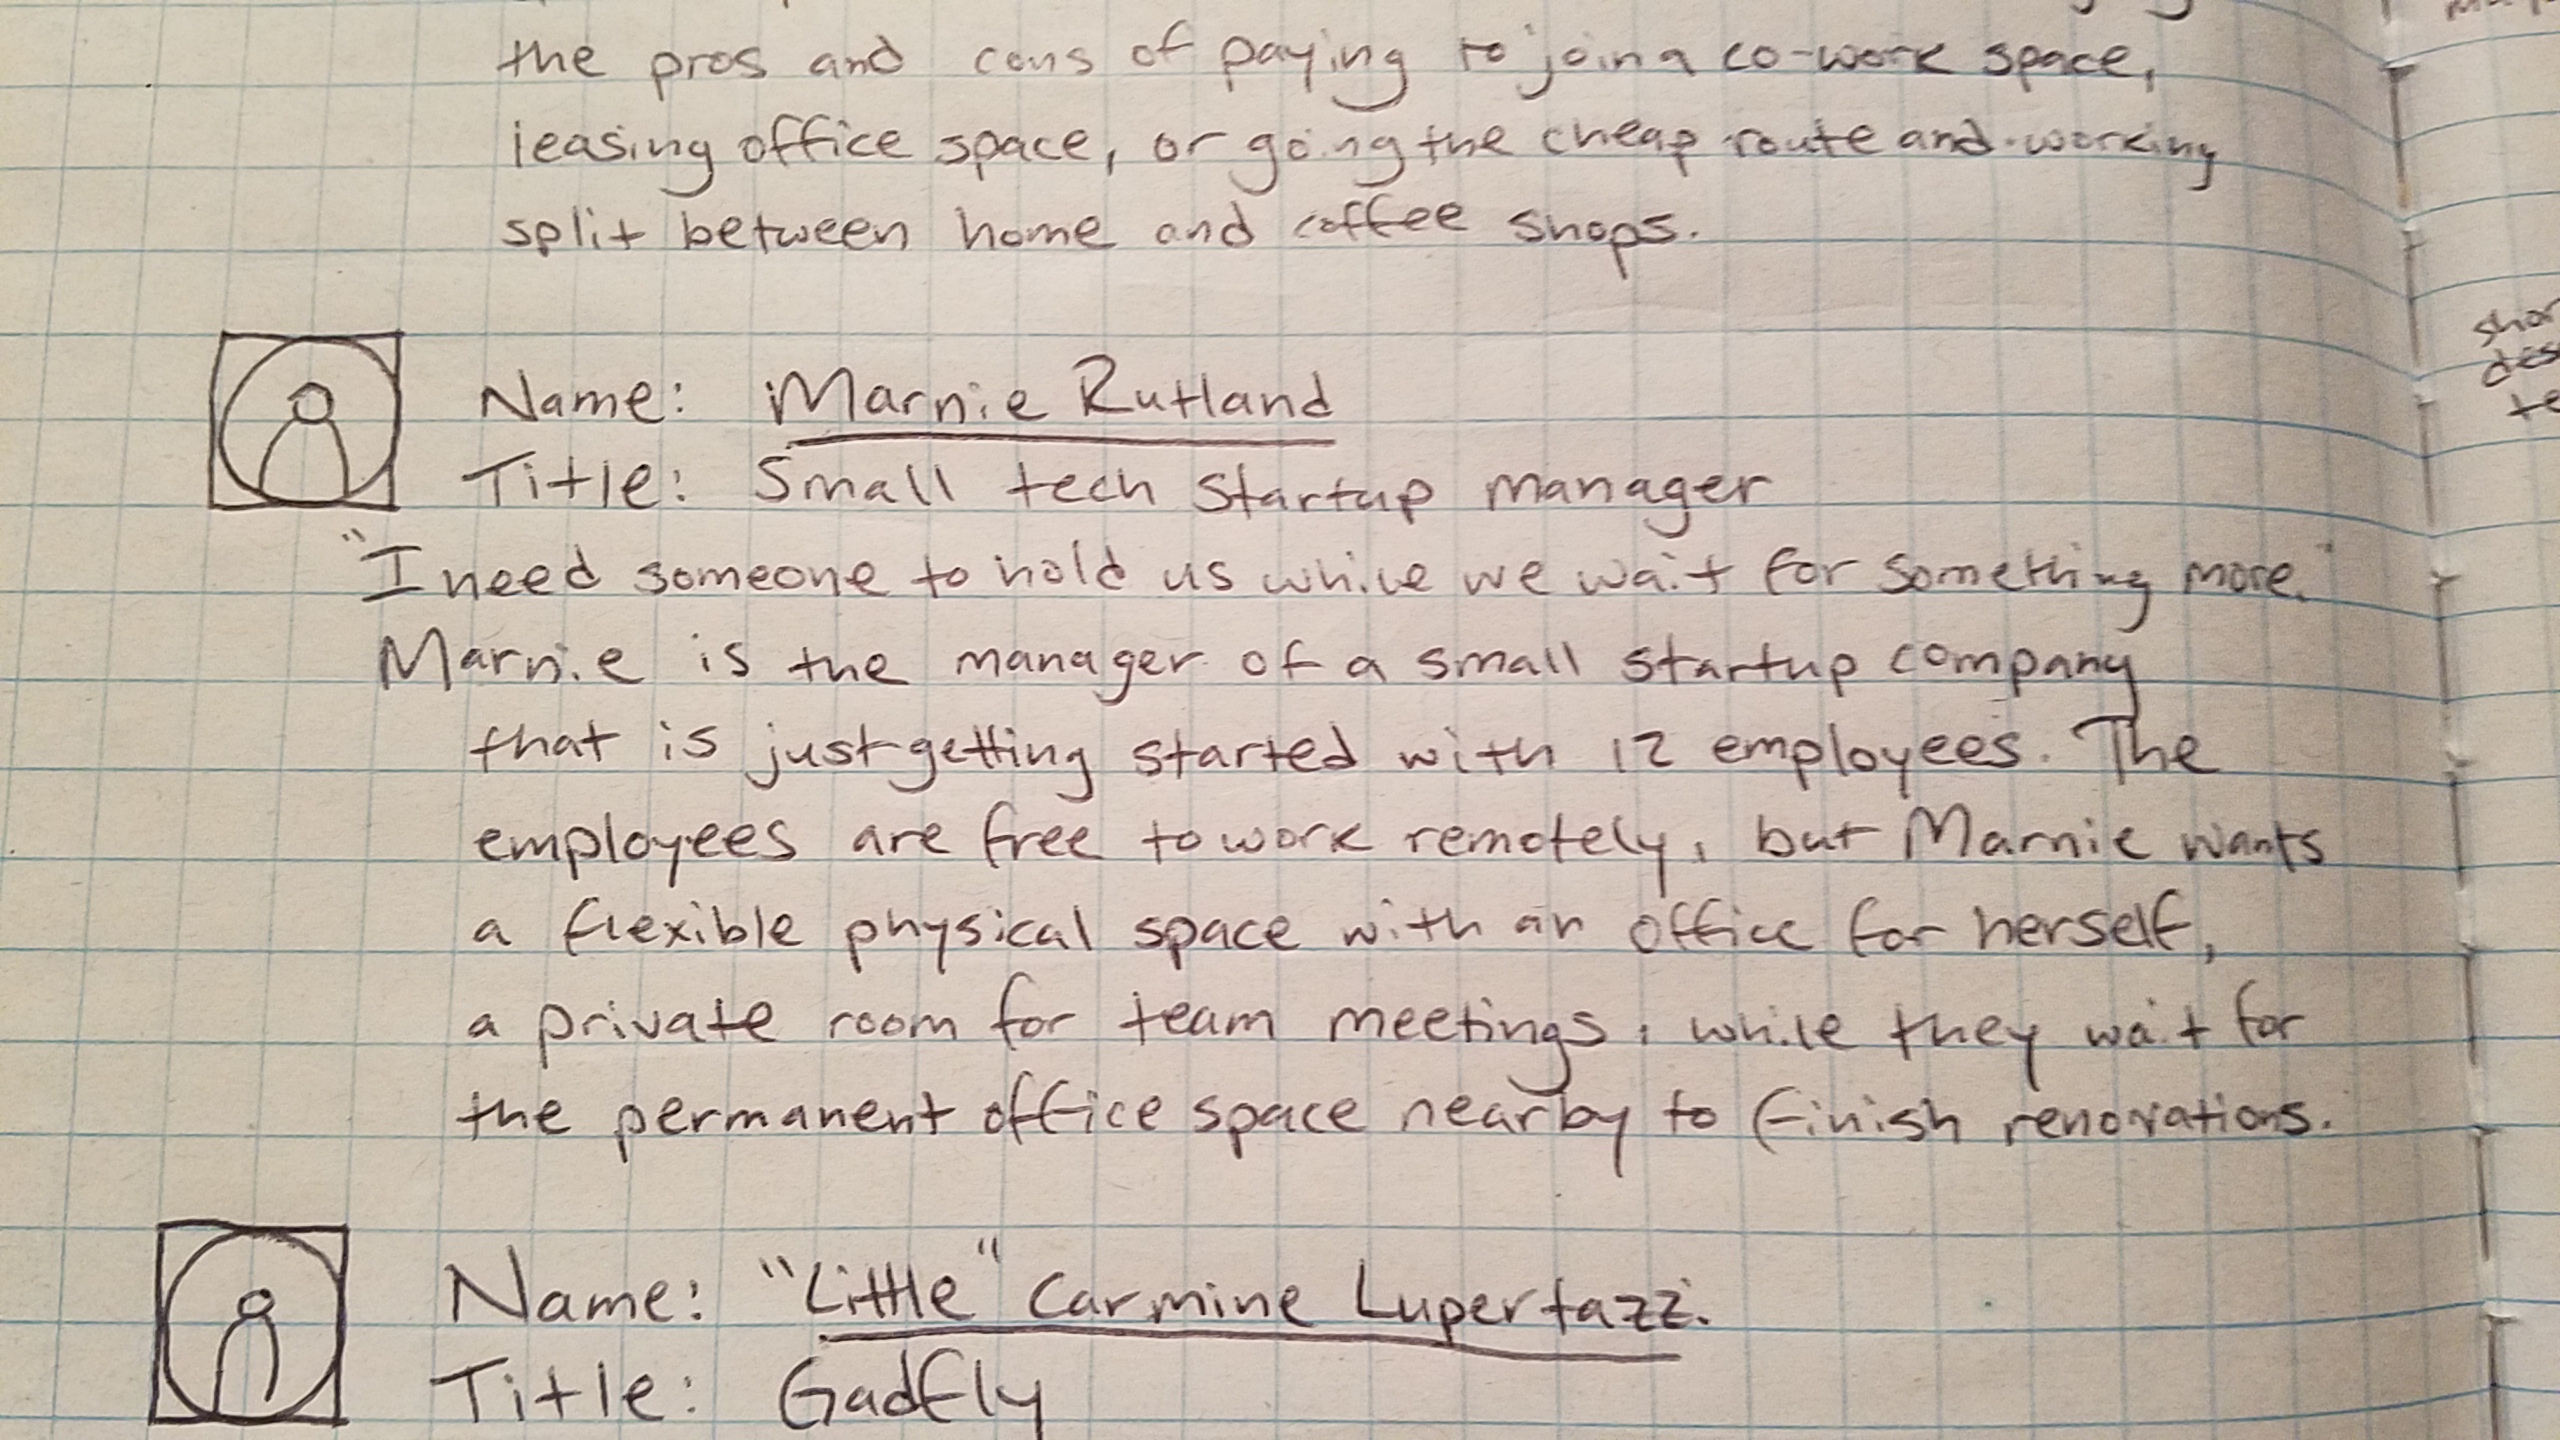 the pros and cons of paying to join a co-work space,
leasing office space, or going the cheap route and working
split between home and coffee shops.
Name: Marnie Rutland
Title: Small tech startup manager
"I need someone to hold us while we wait for something more."
Marnie is the manager of a small startup company
that is just getting started with 12 employees. The
employees are free to work remotely, but Marnie wants
a flexible physical space with an office for herself,
a private room for team meetings, while they wait for
the permanent office space nearby to finish renovations.
Name: "Little" Carmine Lupertazzi
Title: Gadfly